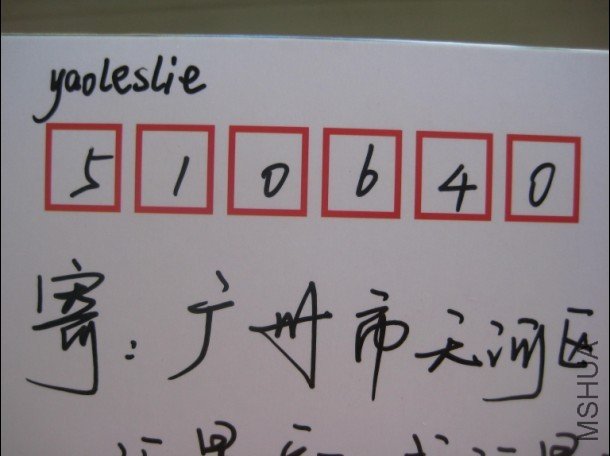 yaoleslie
510640
寄：广州市天河区
MSHUA